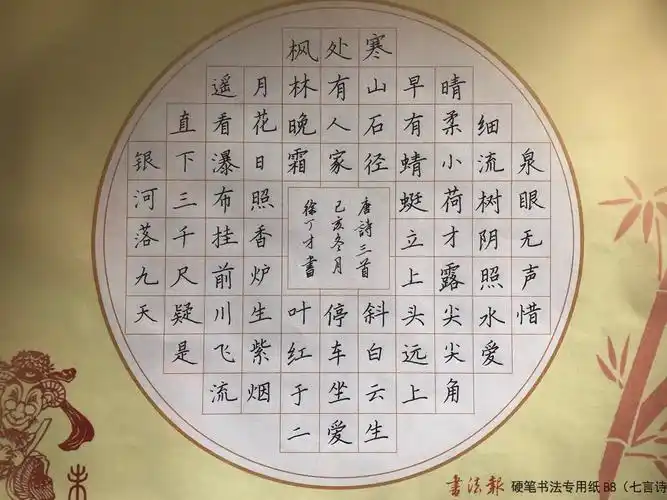 泉眼无声惜
细流树阴照水爱
晴柔小荷才露尖尖角
早有蜻蜓立上头远上
寒山石径斜白云生
处有人家停车坐爱
枫林晚霜叶红于二
月花日照香炉生紫烟
遥看瀑布挂前川飞流
直下三千尺疑是
银河落九天
唐詩三首
己亥冬月
徐丁才書
書法報 硬笔书法专用纸 B8（七言诗